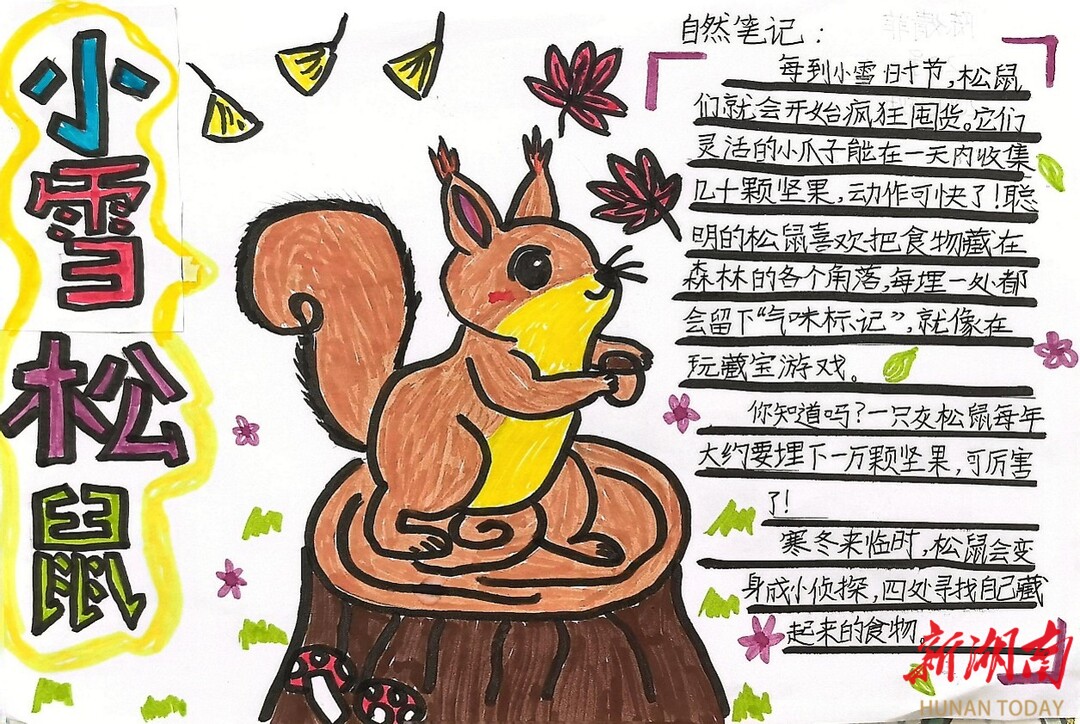 小雪松鼠
自然笔记：
每到小雪时节，松鼠
们就会开始疯狂囤货。它们
灵活的小爪子能在一天内收集
几十颗坚果，动作可快了！聪
明的松鼠喜欢把食物藏在
森林的各个角落，每埋一处都
会留下“气味标记”，就像在
玩藏宝游戏。
你知道吗？一只灰松鼠每年
大约要埋下一万颗坚果，可厉害
了！
寒冬来临时，松鼠会变
身成小侦探，四处寻找自己藏
起来的食物。
新湖南
HUNAN TODAY